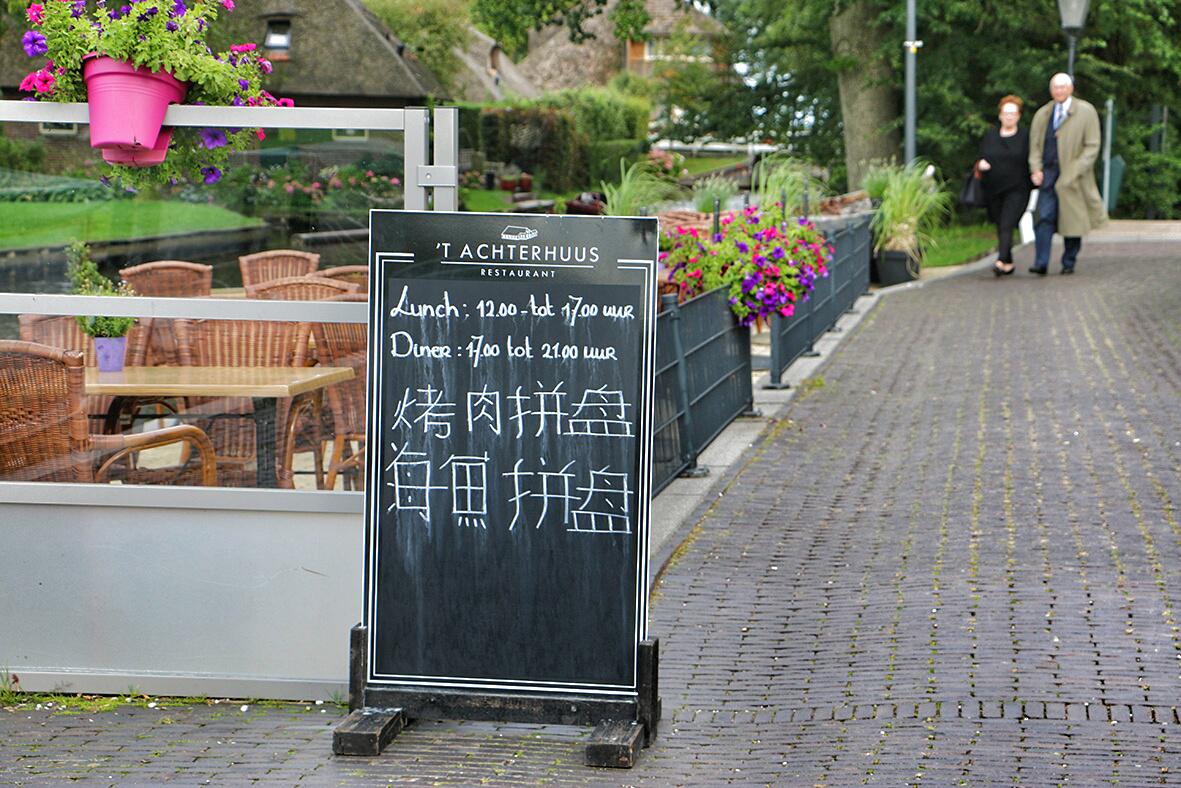 'T ACHTERHUUS
RESTAURANT
Lunch: 12.00 - tot 17.00 uur
Diner: 17.00 tot 21.00 uur
烤肉拼盘
海魚拼盘